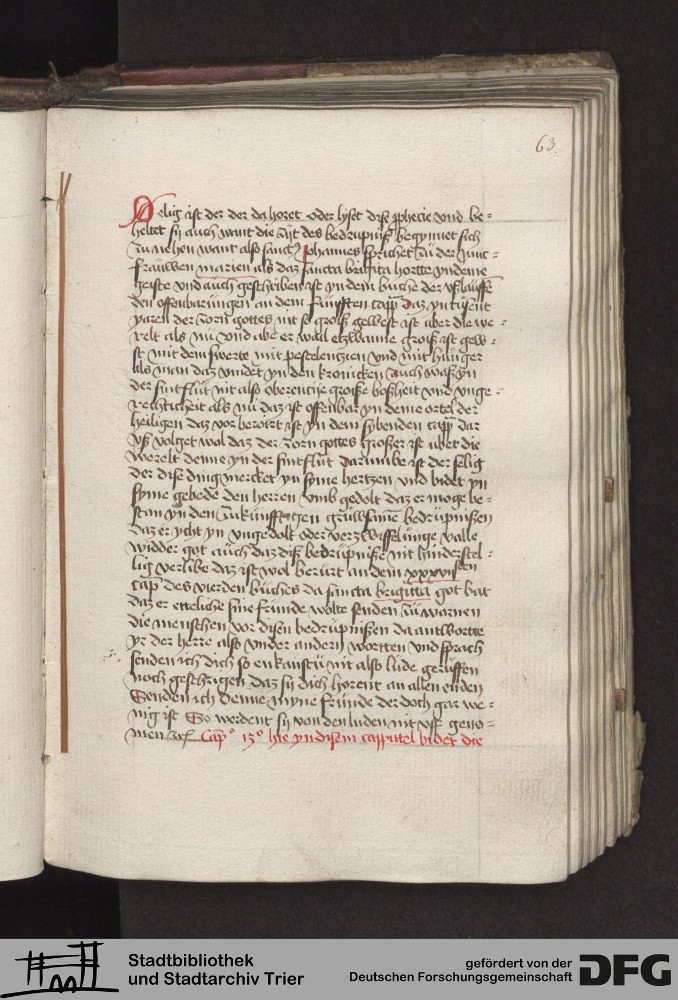 63
Selig ist der der da horet oder lyset dise ꝓphecie vnd be-
heltet sy auch want die zijt des bedrupniß begynnet sich
zu nehen want also sanctꝰ Johannes sprichet zu der Junc-
frauwen marien als daz sancta brigita hortte yn deme
geiste vnd auch geschriben ist yn dem buche der vßlauff
den offenbarungen an dem funfften capp̄ daz yn tusent
yaren der zorn gottes nit so groiß gewest ist aber die we-
relt als nu vnd abe er wail etzwanne groiß ist gew-
st mit dem swerte mit pestelentzien vnd mit hunger
als man daz vindet yn den kronicken Auch waß yn
der sintflut nit also oberentije groiße boßheit vnd vnge-
rechticheit als nu daz ist offenbar yn deme ortel der
heiligen daz vor berort ist yn dem sybenden capp̄ dar
vß volget wol daz der zorn gottes großer ist uber die
werelt denne yn der sintflut Darumbe ist der selig
der dise ding mercket yn syme hertzen vnd bidet yn
syme gebede den herren vmb gedolt daz er moge be-
stan yn den zukunfftigen gruwsame bedrupnißen
daz er ycht yn vngedolt oder verzwiffelunge valle
widder got auch daz diß bedrupniße nit hinderstel-
lig verlibe daz ist wol berurt an dem xxxvijsten
cap̄ des vierden buches da sancta brigitta got bat
daz er etteliche sine frunde wolte senden zu warnen
die menschen vor disen bedrupnißen da antwortte
yr der herre also vnder andern wortten vnd sprach
senden ich dich so enkanstu nit also lude geruffen
noch geschrigen daz sy dich horent an allen enden
Senden ich denne myne frunde der doch gar we-
nig ist So werdent sy von den luden nit vff geno-
men zc̄ Cap̄ᵒ 13ᵒ hie yn disem cappittel bidet die
Stadtbibliothek
und Stadtarchiv Trier
gefördert von der
Deutschen Forschungsgemeinschaft
DFG